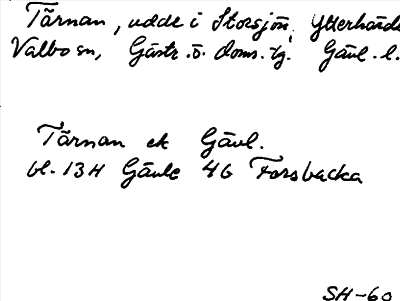 Tärnan, udde i Storsjön, Ytterhärde
Valbo sn, Gästr. ö. doms. dg. Gävl. l.
Tärnan ek Gävl.
bl. 13H Gävle 4G Forsbacka
SH-60